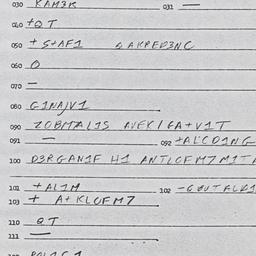 030 KAM3R 031 —
040 +QT
050 +S+AF1 QAKRED3NC
060 O
070 —
080 G1NAJV1
090 ZOBMTAL1S AVEK/GA+V1T
091 — 092 +AL'CD1NG
100 D3RGAN1F H1 ANTLOFM7M1TA
101 +AL1M 102 —GOUTALR1
103 + A+KLOFM7
110 QT
111 —